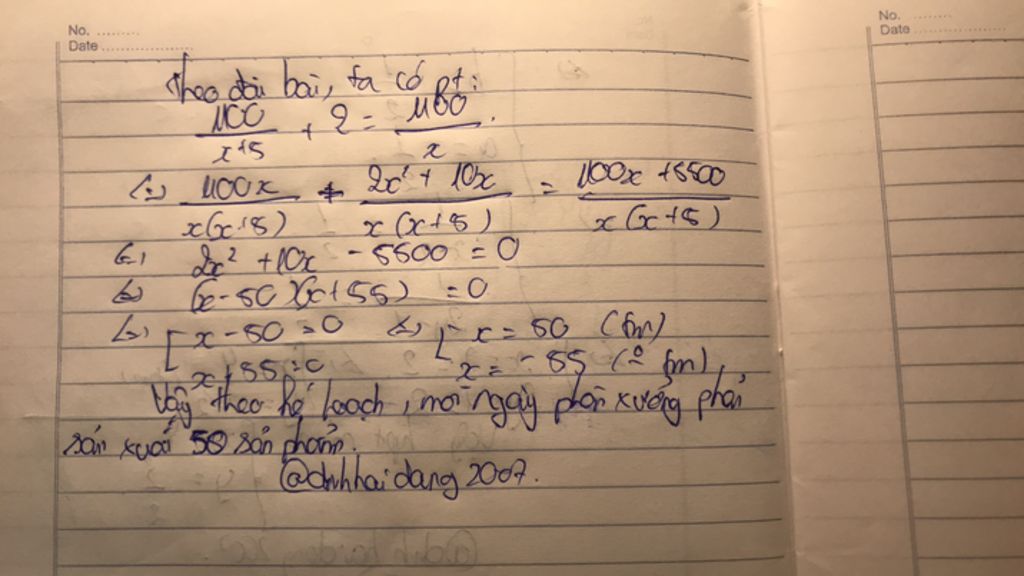 No. .........
Date ........................
Theo đài bài, ta có pt:
1100/x+5 + 2 = 1100/x.
(=) 1100x/x(x+5) + 2x² + 10x/x(x+5) = 1100x + 5500/x(x+5)
(=) 2x² + 10x - 5500 = 0
(=) (x-50)(x+55) = 0
(=) [ x - 50 = 0 (=) [ x = 50 (tm)
x + 55 = 0 x = -55 (ko tm)
Vậy theo kế hoạch, mỗi ngày phân xưởng phải
sản xuất 50 sản phẩm.
@dnhhaidang2007.
No. .........
Date ........................